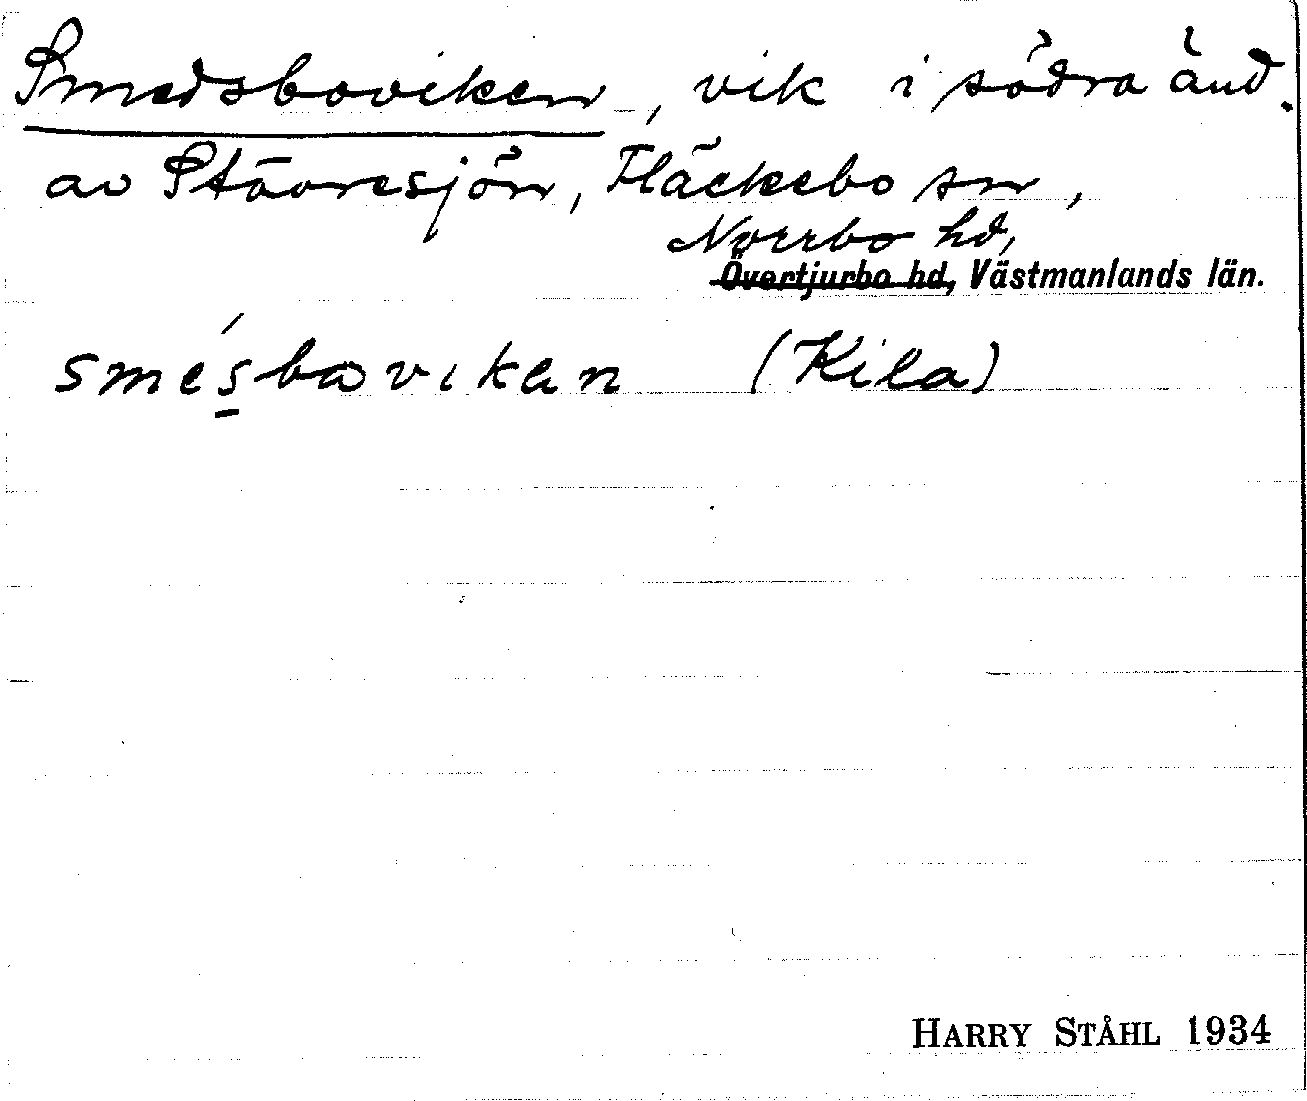 Smedsboviken, vik i södra änd.
av Stävresjön, Fläckebo sn,
Norrbo hd,
Övertjurbo hd, Västmanlands län.
smésbovikan (Kila)
HARRY STÅHL 1934